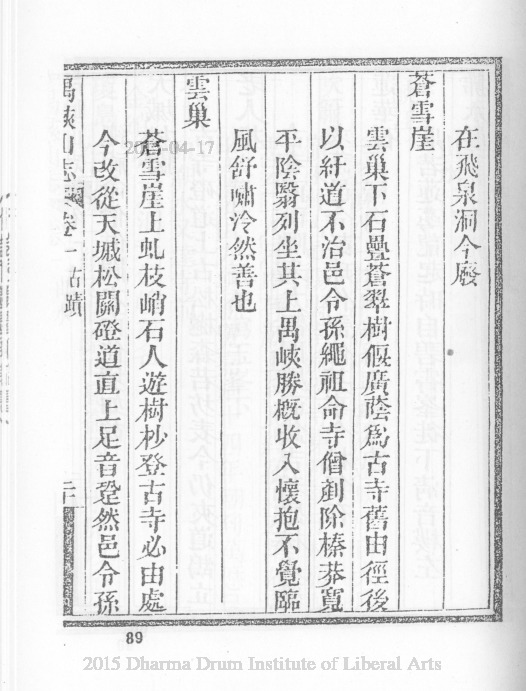 在飛泉洞今廢
蒼雪崖
雲巢下石疊蒼翠樹偃廣蔭爲古寺舊由徑後
以紆道不治邑令孫繩祖命寺僧剷除榛莽寬
平陰翳列坐其上禺峽勝概收入懷抱不覺臨
風舒嘯泠然善也
雲巢
蒼雪崖上虬枝峭石人遊樹杪登古寺必由處
今改從天墄松關磴道直上足音跫然邑令孫
禺峽山志 卷一 古蹟 二十
2015-04-17
89
2015 Dharma Drum Institute of Liberal Arts